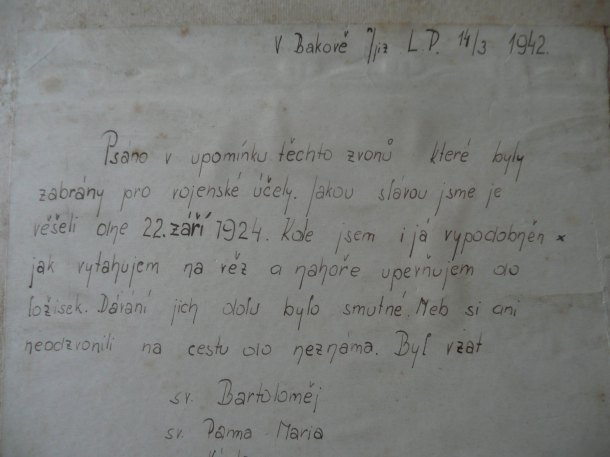 V Bakově n/Jiz L.P. 14/3 1942.
Psáno v upomínku těchto zvonů které byly
zabrány pro vojenské účely. Jakou slávou jsme je
věšeli dne 22. září 1924. Kde jsem i já vypodobněn x
jak vytahujem na věž a nahoře upevňujem do
ložisek. Dávání jich dolu bylo smutné. Neb si ani
neodzvonili na cestu do neznáma. Byl vzat
sv. Bartoloměj
sv. Panna Maria